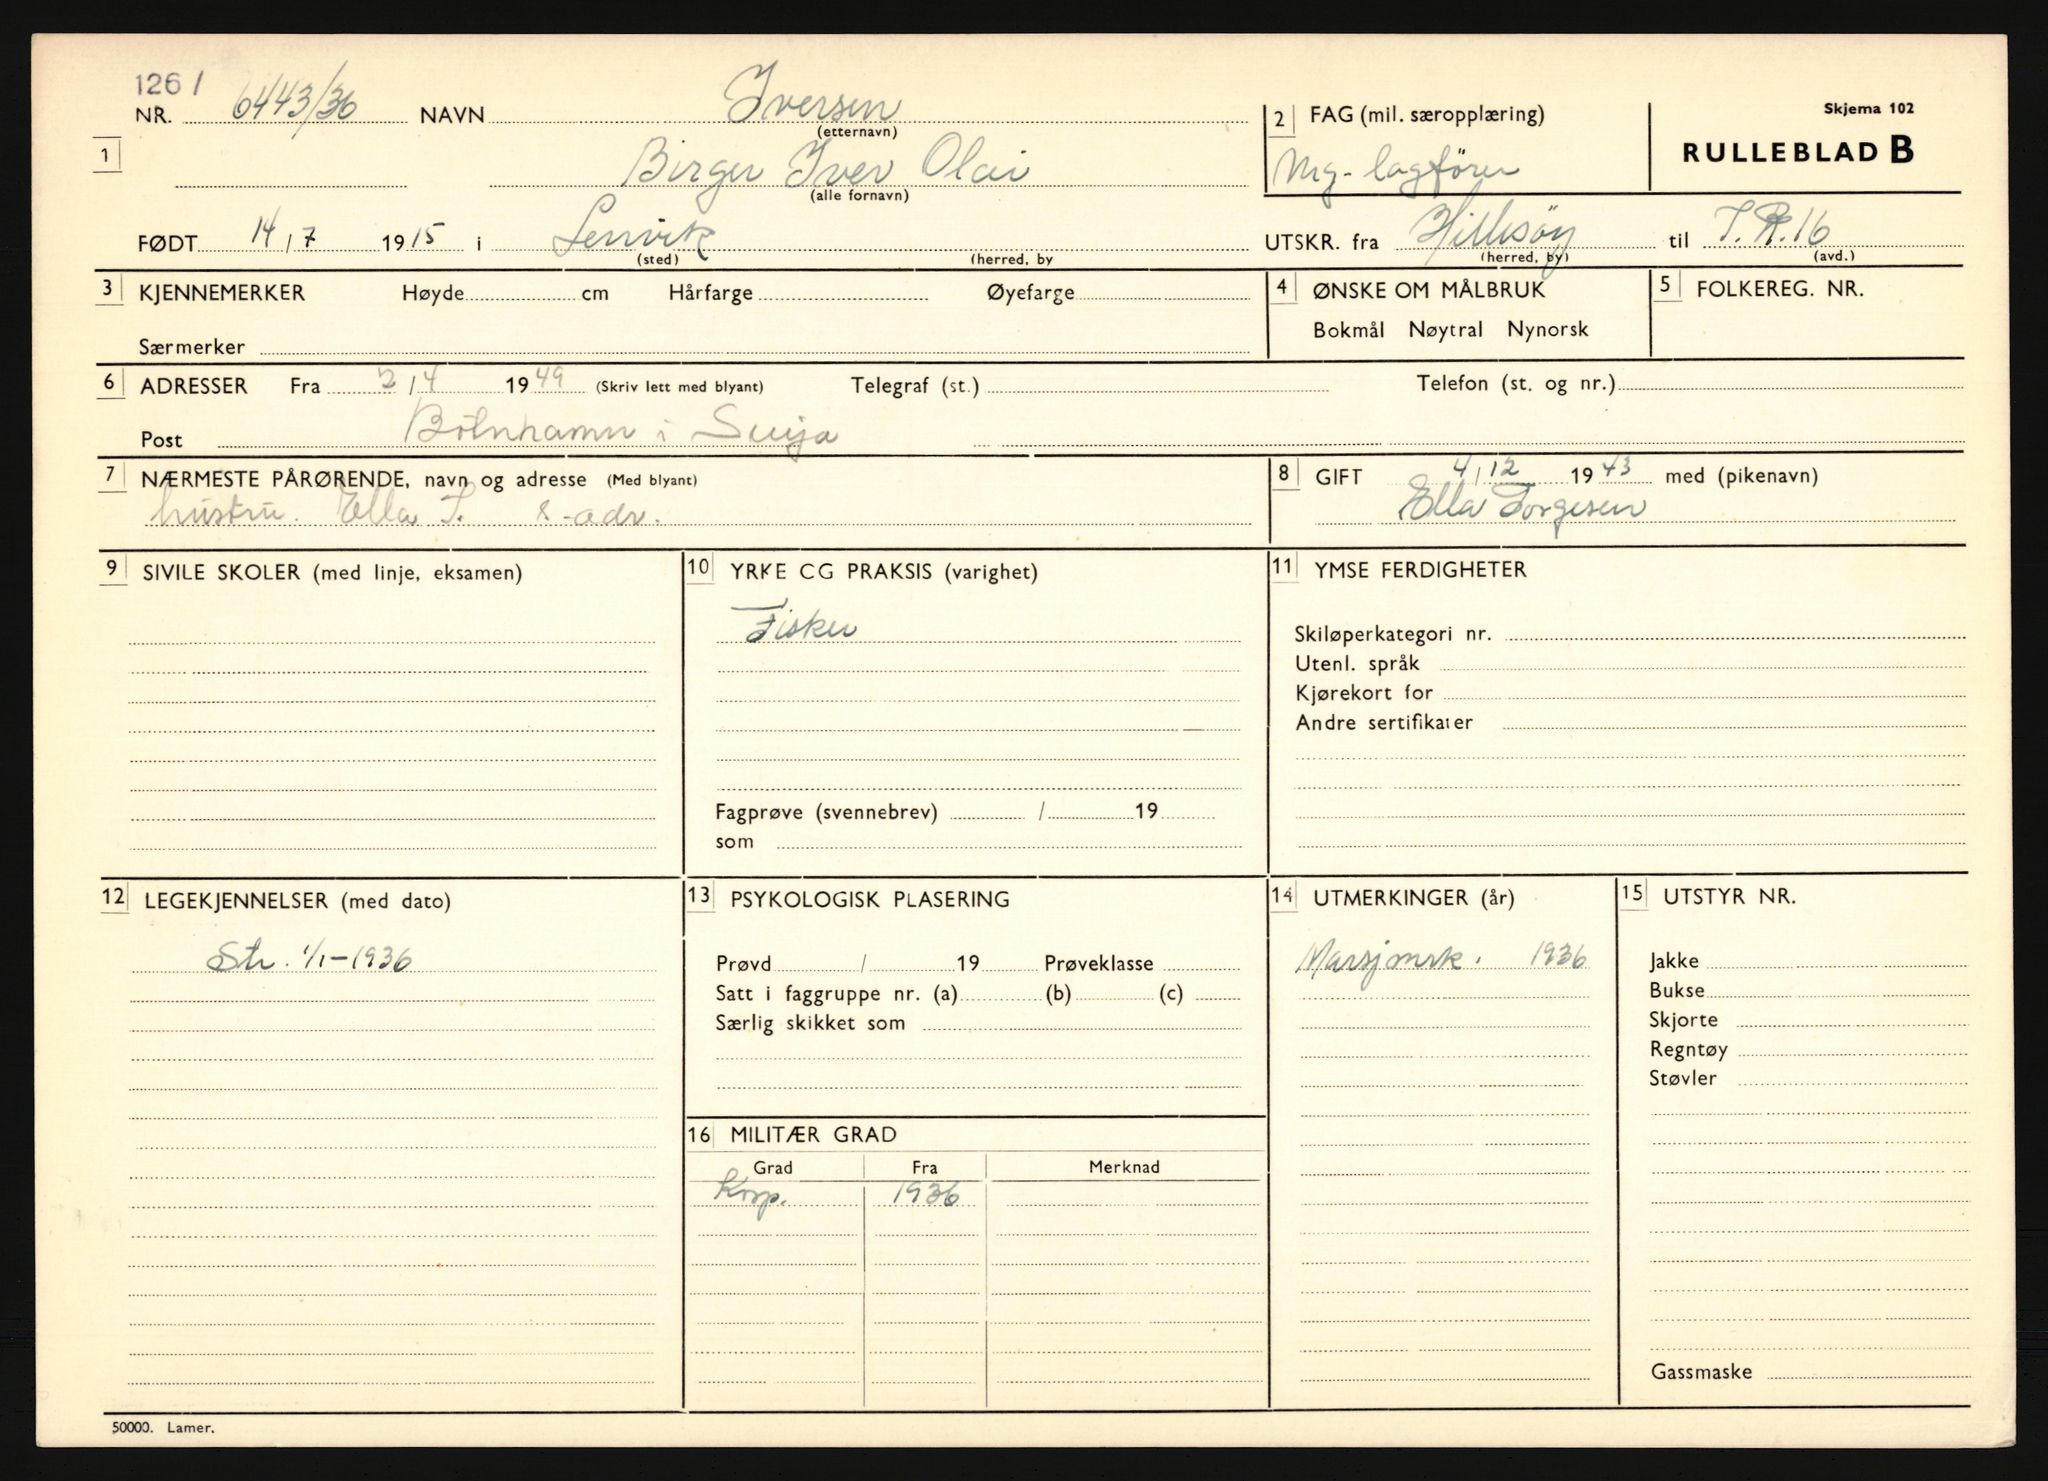 1261
NR. 6443/36 NAVN Iversen
(etternavn)
1 Birger Iver Olai
(alle fornavn)
2 FAG (mil. særopplæring)
Mg-lagfører
Skjema 102
RULLEBLAD B
FØDT 14/7 1915 i Lenvik
(sted) (herred, by
UTSKR. fra Hillesöy til I.R.16
(herred, by) (avd.)
3 KJENNEMERKER Høyde cm Hårfarge Øyefarge
Særmerker
4 ØNSKE OM MÅLBRUK
Bokmål Nøytral Nynorsk
5 FOLKEREG. NR.
6 ADRESSER Fra 2/4 1949 (Skriv lett med blyant) Telegraf (st.) Telefon (st. og nr.)
Post i Senja
7 NÆRMESTE PÅRØRENDE, navn og adresse (Med blyant)
hustru. Ella I. s-adr.
8 GIFT 4/12 1943 med (pikenavn)
Ella Torgersen
9 SIVILE SKOLER (med linje, eksamen)
10 YRKE CG PRAKSIS (varighet)
Fisker
Fagprøve (svennebrev) / 19
som
11 YMSE FERDIGHETER
Skiløperkategori nr.
Utenl. språk
Kjørekort for
Andre sertifikater
12 LEGEKJENNELSER (med dato)
Str. 1/1-1936
13 PSYKOLOGISK PLASERING
Prøvd / 19 Prøveklasse
Satt i faggruppe nr. (a) (b) (c)
Særlig skikket som
14 UTMERKINGER (år)
Marsjmrk. 1936
15 UTSTYR NR.
Jakke
Bukse
Skjorte
Regntøy
Støvler
Gassmaske
16 MILITÆR GRAD
Grad Fra Merknad
Korp. 1936
50000. Lamer.